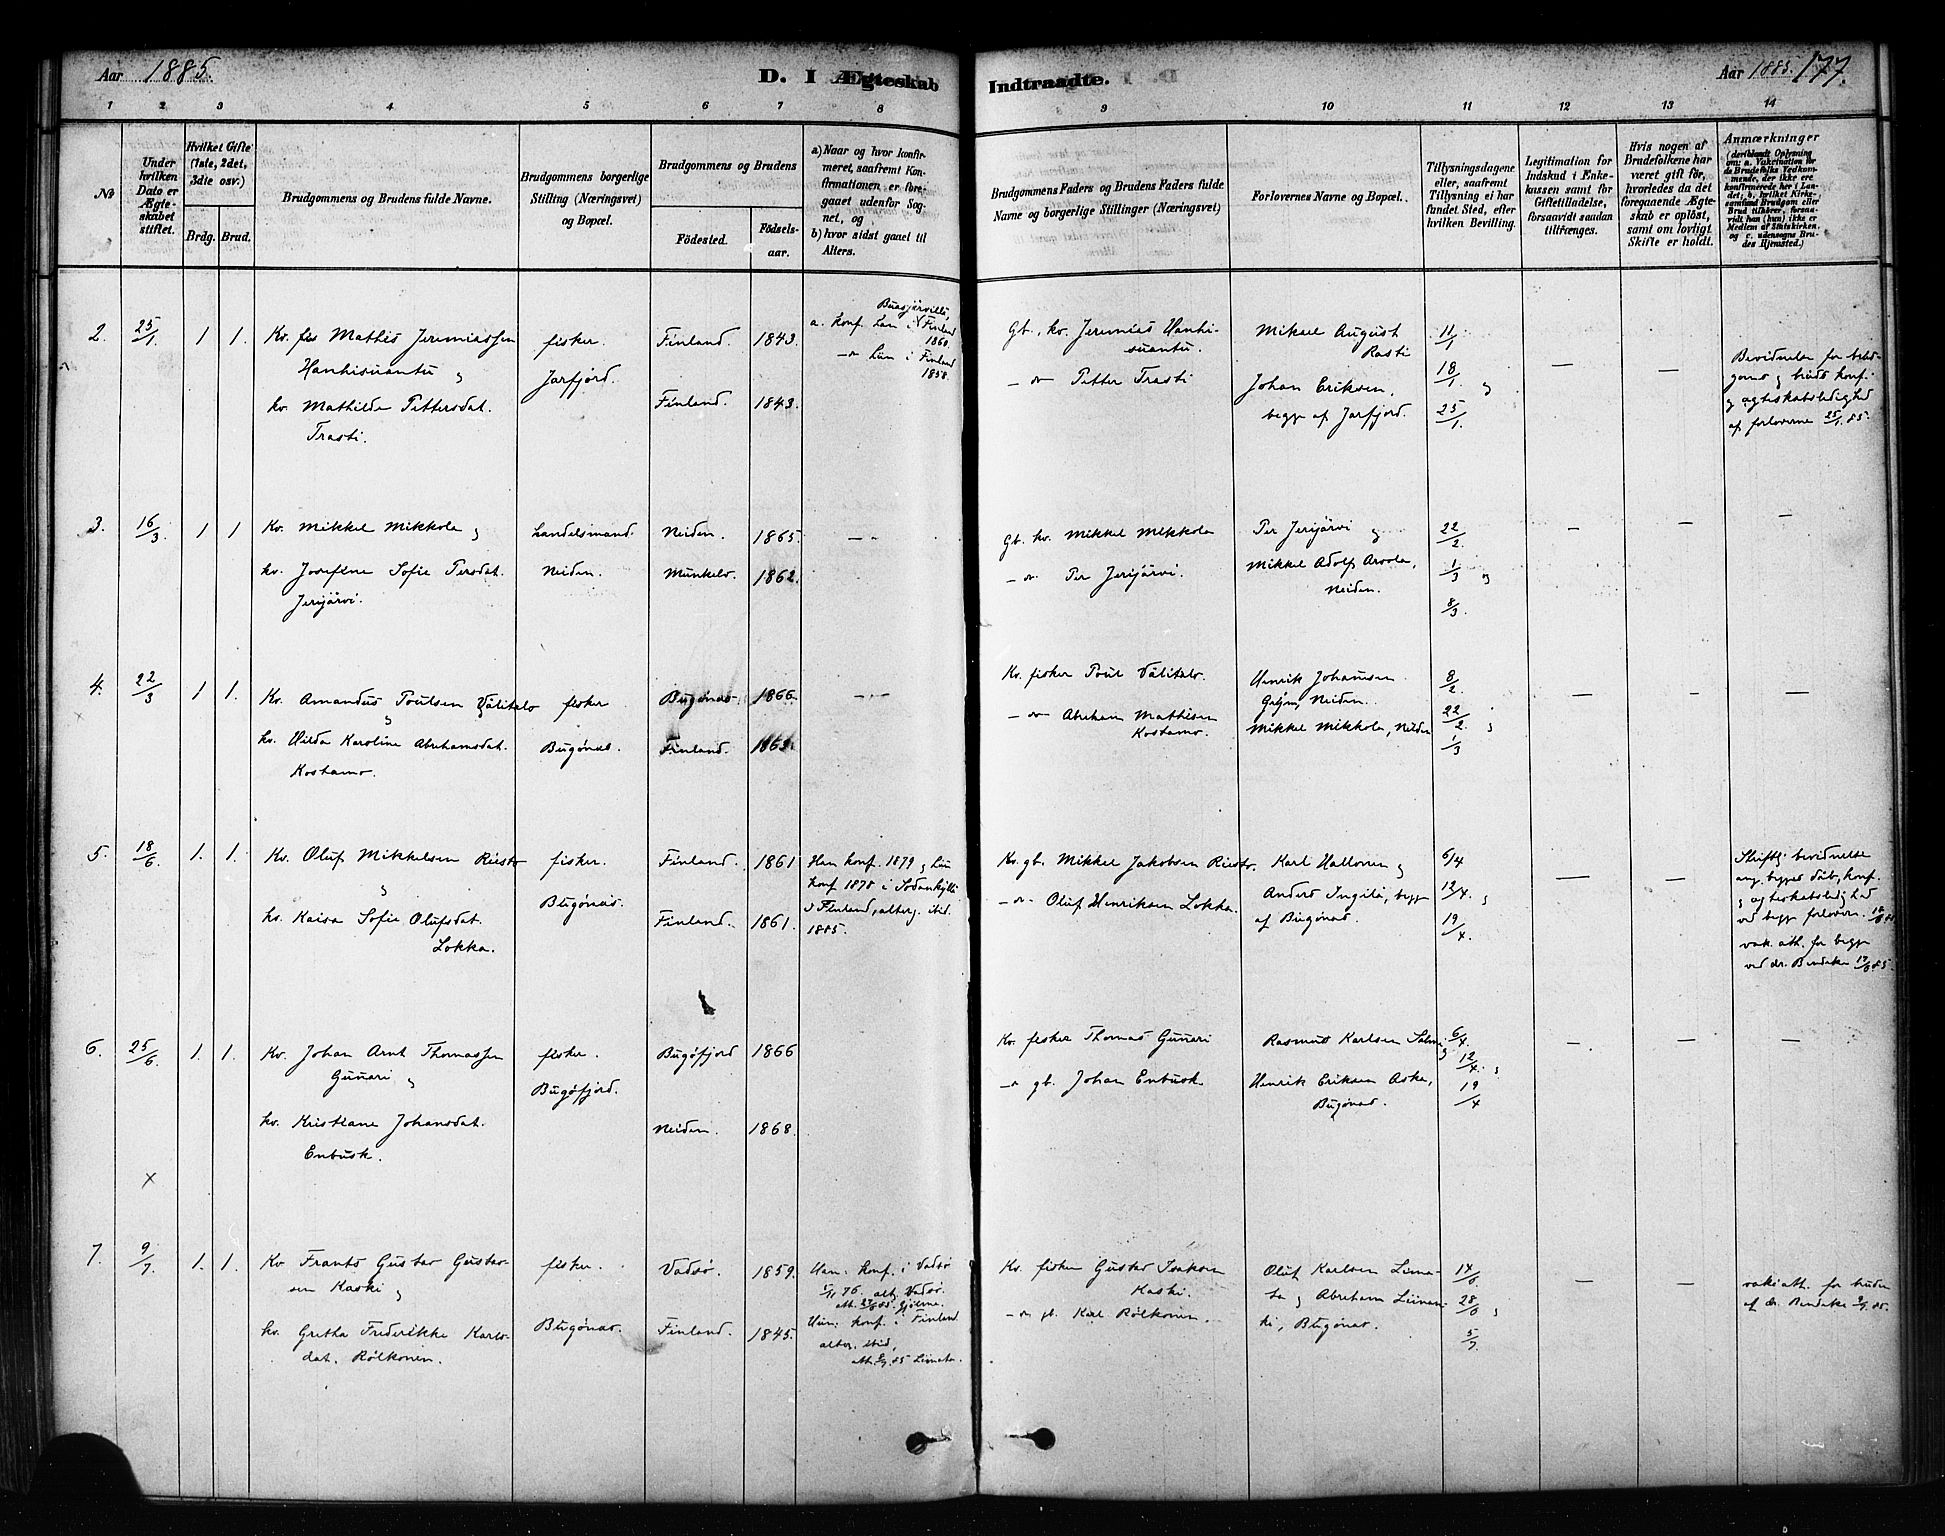 Aar 1885.
D. I Ægteskab Indtraadte.
Aar 1885. 177.
1 2 3 4 5 6 7 8 9 10 11 12 13 14
No
Under hvilken Dato er Ægteskabet stiftet.
Hvilket Gifte (1ste, 2det, 3die osv.)
Brdg. Brud.
Brudgommens og Brudens fulde Navne.
Brudgommens borgerlige Stilling (Næringsvei) og Bopæl.
Brudgommens og Brudens
Födested. Födselsaar.
a) Naar og hvor konfirmeret, saafremt Konfirmationen er foregaaet udenfor Sognet, og
b) hvor sidst gaaet til Alters.
Brudgommens Faders og Brudens Faders fulde Navne og borgerlige Stillinger (Næringsvei)
Forlovernes Navne og Bopæl.
Tillysningsdagene eller, saafremt Tillysning ei har fundet Sted, efter hvilken Bevilling.
Legitimation for Indskud i Enkekassen samt for Giftetilladelse, forsaavidt saadan tiltrænges.
Hvis nogen af Brudefolkene har været gift för, hvorledes da det foregaaende Ægteskab er oplöst, samt om lovligt Skifte er holdt.
Anmærkninger
(deriblandt Oplysning om: a. Vakcination for de Brudefolks Vedkommende, der ikke ere konfirmerede her i Landet; b. hvilket Kirkesamfund Brudgom eller Brud tilhörer, forsaavidt han (hun) ikke er Medlem af Statskirken. og c. udensogns Brudes Hjemsted.)
2. 25/1 1 1.
Kv. fis Mathis Jeremiassen
Hanhisuantu og
kv. Mathilde Pettersdat.
Trasti.
fisker.
Jarfjord.
Finland. 1843.
Finland. 1843.
a. konf. han i Finland
1860.
— do — hun i Finland
1858.
Gb. kv. Jeremias Hanhi-
suantu.
— do — Petter Trasti
Mikael August
Rasti
Johan Eriksen,
begge af Jarfjord.
11/1
18/1 og
25/1.
— —
Bevidnelse for brud-
goms og bruds konf.
og ægteskabsledighed
af forloverne 25/1 85.
3. 16/3 1 1
Kv. Mikkel Mikkola og
kv. Josefine Sofie Persdat.
Jerijärvi.
Landelsmand.
Neiden.
Neiden. 1865.
Munkelv. 1862.
— " —
Gb. kv. Mikkel Mikkola
— do — Per Jerijärvi.
Per Jerijärvi og
Mikkel Adolf Arvola,
Neiden.
22/2.
1/3 og
8/3.
— — —
4. 22/3 1 1.
Kv. Amandus Poulsen Välitalo
og
kv. Hilda Karoline Abrahamsdat.
Kostamo.
fisker
Bugønæs.
Bugønæs. 1866.
Finland.
— " —
Kv. fisker Poul Välitalo.
— do — Abraham Mathisen
Kostamo.
Henrik Johansen
Neiden.
Mikkel Mikkola, Neiden
8/2.
22/2. og
1/3
— — —
5. 18/6. 1. 1.
Kv. Oluf Mikkelsen Riesto
og
kv. Kaisa Sofie Olufsdat.
Lokka.
fisker.
Bugønæs.
Finland. 1861
Finland. 1861.
Han konf. 1879 og hun
konf 1878 i Sodankylli
i Finland, alterg. ibid.
1885.
Kv. gb. Mikkel Jakobsen Riesto.
— do — Oluf Henriksen Lokka.
Karl Hallonen og
Anders Ingilä, begge
af Bugønæs.
6/4
12/4. og
19/4.
— —
Skriftlig bevidnelse
ang. begges dåb, konf.
og ægteskabsledighed
ved begge forlovere.
vak. att. for begge
ved dr. Bendeke 17/6 85.
6. 25/6. 1. 1.
Kv. Johan Arnt Thomassen
Gunari og
kv. Kristiane Johansdat.
Enbusk.
fisker.
Bugøfjord.
Bugøfjord 1866
Neiden. 1868.
Kv. fisker Thomas Gunari
— " gb. Johan Enbusk
Rasmus Karlsen Salmi
og
Henrik Eriksen Aske,
Bugønæs.
6/4.
12/4. og
19/4
— — —
X
7. 9/7. 1. 1.
Kv Frants Gustav Gustav-
sen Kaski og
kv. Gretha Frederikke Karls-
dat. Rölkonen.
fisker.
Bugønæs.
Vadsø. 1859.
Finland. 1845.
Han. konf. i Vadsø
76. altg. Vadsø.
Hun: konf. i Finland
alter. ibid,
att. 85 Limeta.
Kv. fisker Gustav Isaksen
Kaski.
— do — gb. Karl Rölkonen.
Oluf Karlsen Lime-
ta og Abraham Liinan-
ki, Bugønæs.
14/6.
28/6 og
5/7.
— —
vaks att. for bruden
af dr. Bendeke 9/7 85.